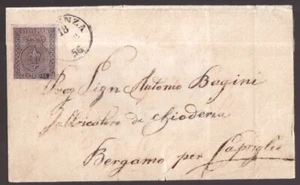 ENZA
18
56
Preg Sign Antonio Bagini
Fabricatore di Chioderia
Bergamo per Capriglio